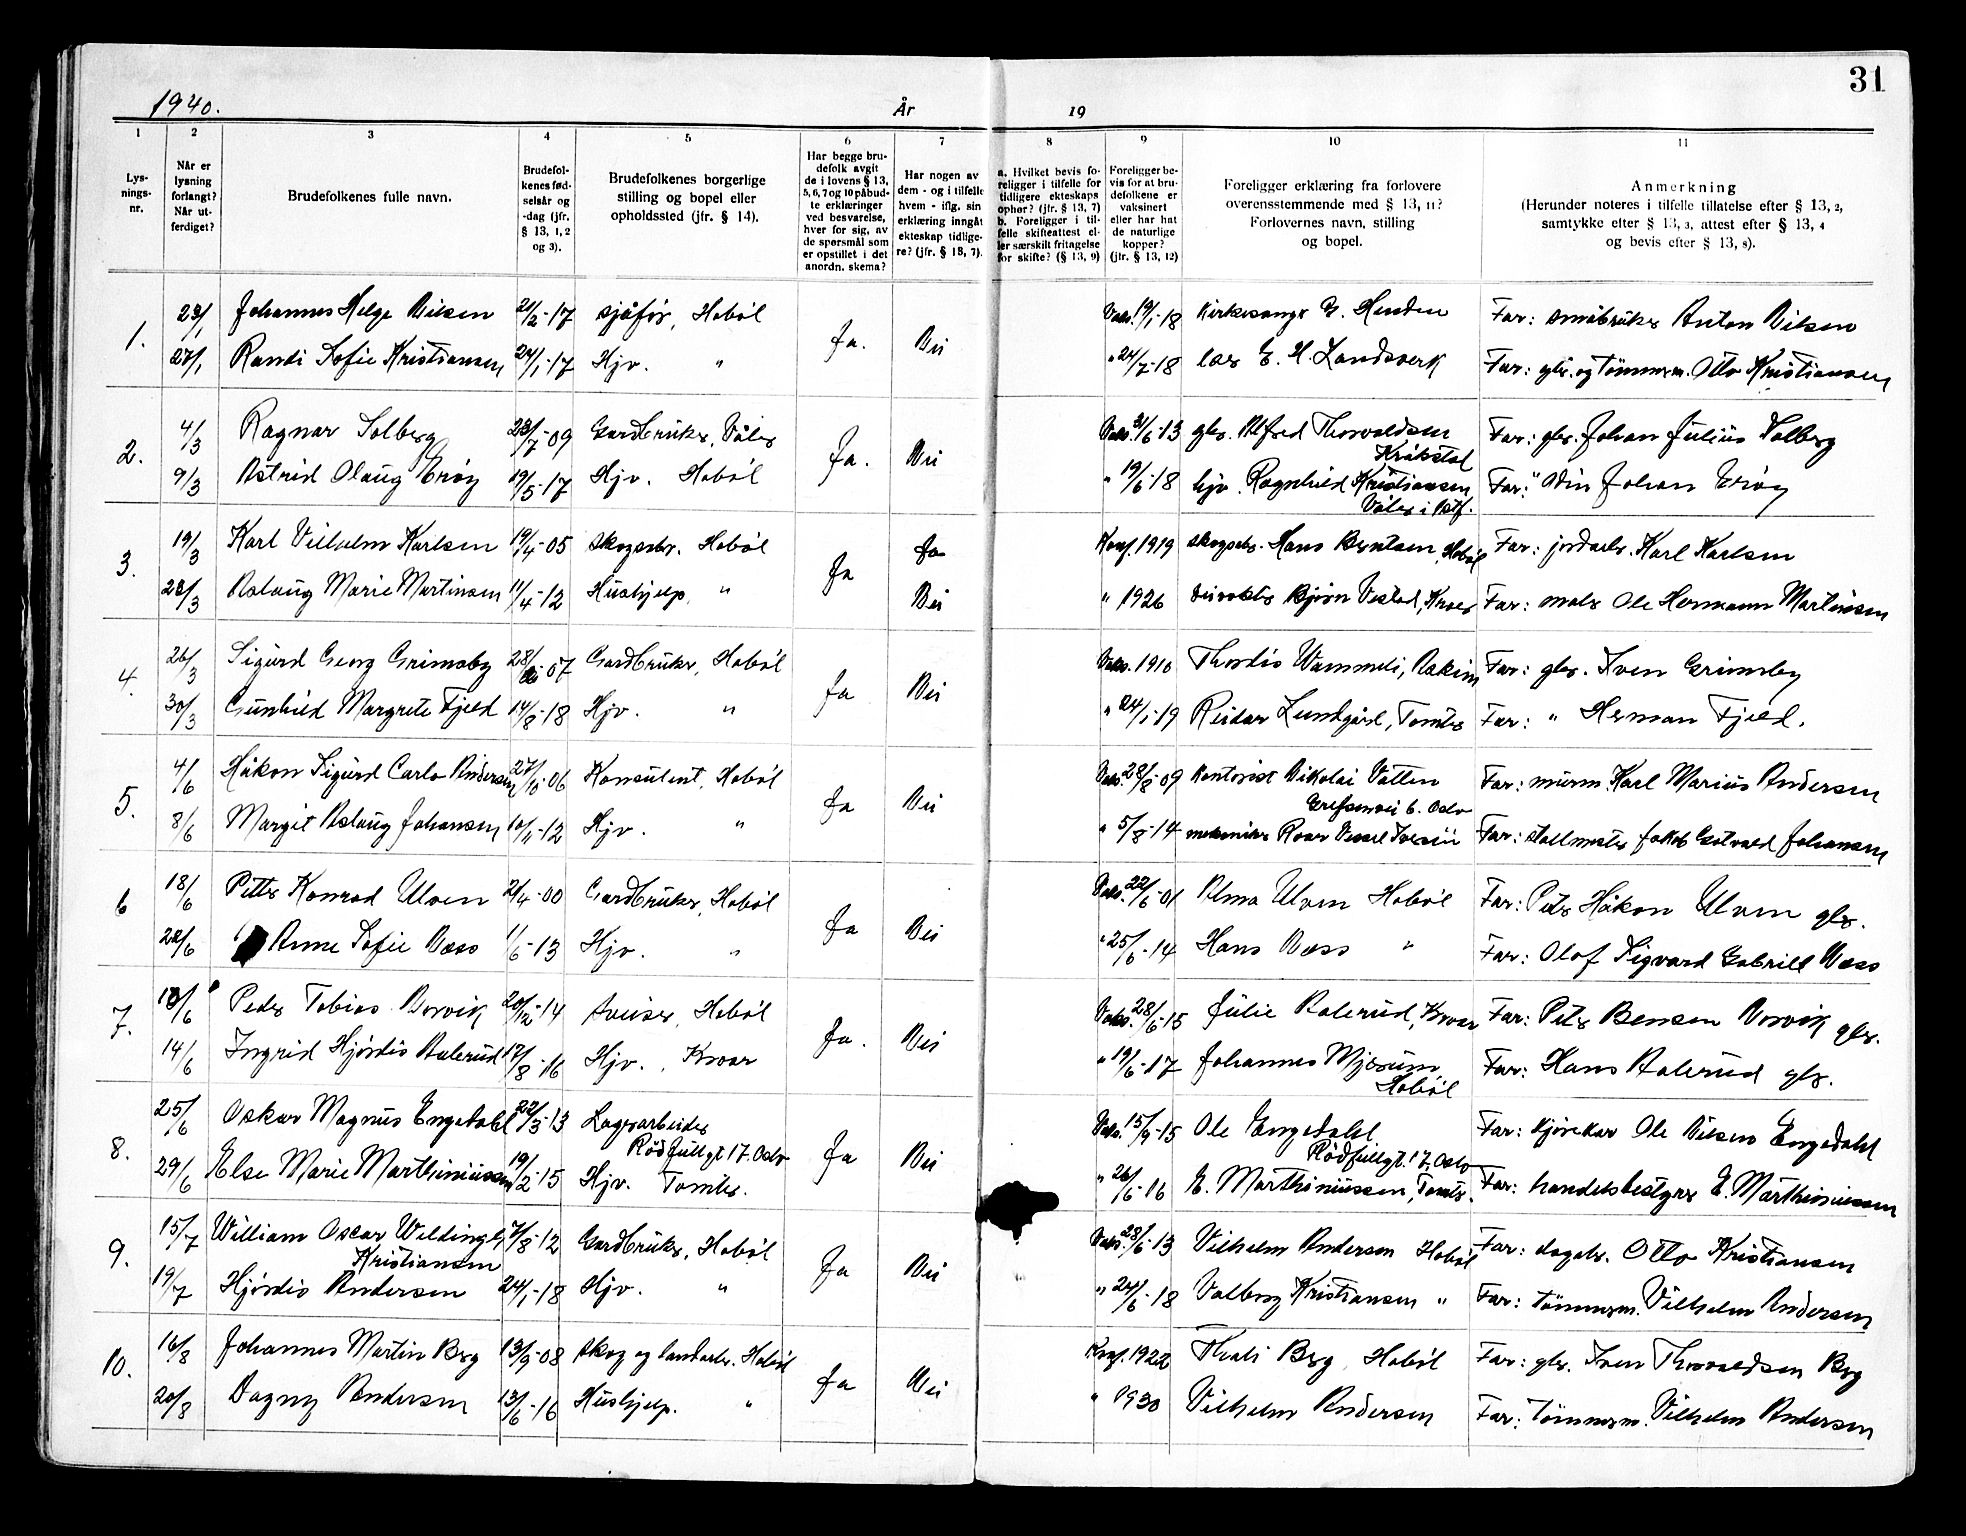 31
1940. År 19
1 2 3 4 5 6 7 8 9 10 11
Lys-
nings-
nr.
Når er
lysning
forlangt?
Når ut-
ferdiget?
Brudefolkenes fulle navn.
Brudefol-
kenes fød-
selsår og
-dag (jfr.
§ 13, 1, 2
og 3).
Brudefolkenes borgerlige
stilling og bopel eller
opholdssted (jfr. § 14).
Har begge bru-
defolk avgit
de i lovens § 13,
5, 6, 7 og 10 påbud-
te erklæringer
ved besvarelse,
hver for sig, av
de spørsmål som
er opstillet i det
anordn. skema?
Har nogen av
dem - og i tilfelle
hvem - iflg. sin
erklæring inngått
ekteskap tidlige-
re? (jfr. § 13, 7).
a. Hvilket bevis fo-
religger i tilfelle for
tidligere ekteskaps
ophør? (jfr. § 13, 7)
b. Foreligger i til-
felle skifteattest el-
ler særskilt fritagelse
for skifte? (§ 13, 9)
Foreligger be-
vis for at bru-
defolkene er
vaksinert
eller har hat
de naturlige
kopper?
(jfr. § 13, 12)
Foreligger erklæring fra forlovere
overensstemmende med § 13, 11?
Forlovernes navn, stilling
og bopel.
Anmerkning
(Herunder noteres i tilfelle tillatelse efter § 13, 2,
samtykke efter § 13, 3, attest efter § 13, 4
og bevis efter § 13, 8).
1. 23/1 Johannes Helge Nilsen 21/2-17 sjåfør, Hobøl Ja. Nei Vaks. 19/1-18 Kirkesanger E. Far: småbruker Anton Nilsen
27/1 Randi Sofie Kristiansen 24/1-17 Hjv. " " 24/7-18 E. H. Landsverk Far: gbr. og tømmerm. Otto Kristiansen
2. 4/3 Ragnar Solberg 23/7-09 Gardbruker, Våler Ja. Nei Vaks. 21/6-13 gbr. Alfred Thorvaldsen Far: gbr. Johan Julius Solberg
Kråkstad
9/3 Astrid Olaug Erøy 19/5-17 Hjv. Hobøl " 19/6-18 hjv. Ragnhild Kristiansen Far: " Odin Johan Erøy
Våler i Østf.
3. 19/3 Karl Vilhelm Karlsen 19/4-05 skogsarb. Hobøl Ja Ja Konf. 1919 skogsarb. Hans Berntsen, Hobøl Far: jordarb. Karl Karlsen
28/3 Aslaug Marie Martinsen 11/4-12 Hushjelp, " Nei " 1926 Bjørn Vestad, Kroer Far: maler Ole Hermann Martinsen
4. 26/3 Sigurd Georg Grimsby 28/-07 Gardbruker, Hobøl Ja Nei Vaks. 1910 Thordis Wammeli, Askim Far: gbr. Sven Grimsby
30/3 Gunhild Margrete Fjeld 14/8-18 Hjv. " " 24/1-19 Reidar Lundgård, Tomter Far: " Herman Fjeld.
5. 4/6 Håkon Sigurd Carlo Andersen 27/10-06 Konsulent, Hobøl Ja Nei Vaks. 28/8-09 Kontorist Nikolai Vatten Far: murm. Karl Marius Andersen
Grefsenvei 6. Oslo
8/6 Margit Aslaug Johansen 10/11-12 Hjv. " " 5/8-14 mekaniker Roar Far: stallmester Jakob Gotvald Johansen
6 18/6 Petter Konrad Ulven 2/4-00 Gardbruker, Hobøl Ja Nei Vaks. 22/6-01 Alma Ulven Hobøl Far: Peter Håkon Ulven gbr.
22/6 Anne Sofie Næss 1/6-13 Hjv. " " 25/6-14 Hans Næss " Far: Olof Sigvard Gabriell Næss
7. 10/6 Peder Tobias Norvik 20/12-14 Sveiser, Hobøl Ja. Nei Vaks. 28/6-15 Julie Aalerud, Kroer Far: Peter Bensen Norvik gbr.
14/6 Ingrid Hjørdis Aalerud 17/8-16 Hjv., Kroer " 19/6-17 Johannes Mjørum Far: Hans Aalerud gbr.
Hobøl
8. 25/6 Oskar Magnus Engedahl 22/3-13 Lagerarbeider Ja Nei Vaks. 15/9-15 Ole Engedahl Far: kjørekar Ole Nilsen Engedahl
Rødfyllgt 17. Oslo Rødfyllgt. 17, Oslo
29/6 Else Marie Marthiniussen 19/2-15 Hjv. Tomter. " 26/6-16 E. Marthiniussen, Tomter. Far: handelsbestyrer E. Marthiniussen
9. 15/7 William Oscar Weldingh 7/8-12 Gardbruker, Hobøl Ja Nei Vaks. 28/6-13 Vilhelm Andersen Hobøl Far: dagarb. Otto Kristiansen
Kristiansen
19/7 Hjørdis Andersen 24/1-18 Hjv. " " 24/6-18 Valborg Kristiansen " Far: tømmerm. Vilhelm Andersen
10. 16/8 Johannes Martin Berg 13/9-08 skog og landarb. Hobøl Ja Nei Konf. 1922 Thali Berg, Hobøl Far: gbr. Sven Thorvaldsen Berg
20/8 Dagny Andersen 13/6-16 Hushjelp. " " 1930 Vilhelm Andersen Far: tømmerm. Vilhelm Andersen